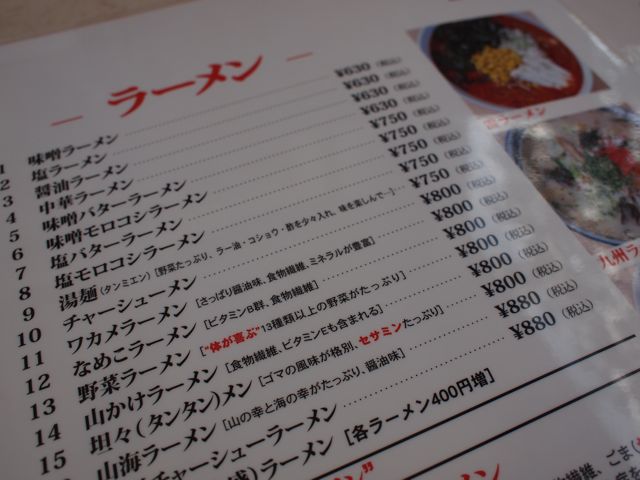 ー ラーメン ー
1 味噌ラーメン ¥630（税込）
2 塩ラーメン ¥630（税込）
3 醤油ラーメン ¥630（税込）
4 中華ラーメン ¥630（税込）
5 味噌バターラーメン ¥750（税込）
6 味噌モロコシラーメン ¥750（税込）
7 塩バターラーメン ¥750（税込）
8 塩モロコシラーメン ¥750（税込）
9 湯麺（タンミエン）[野菜たっぷり、ラー油・コショウ・酢を少々入れ、味を楽しんで…] ¥800（税込）
10 チャーシューメン ¥800（税込）
11 ワカメラーメン [さっぱり醤油味、食物繊維、ミネラルが豊富] ¥800（税込）
12 なめこラーメン [ビタミンB群、食物繊維] ¥800（税込）
13 野菜ラーメン ["体が喜ぶ"13種類以上の野菜がたっぷり] ¥880（税込）
14 山かけラーメン [食物繊維、ビタミンEも含まれる] ¥880（税込）
15 坦々（タンタン）メン [ゴマの風味が格別、セサミンたっぷり]
山海ラーメン [山の幸と海の幸がたっぷり、醤油味]
チャーシューラーメン
）ラーメン [各ラーメン400円増]
ラーメン
九州ラ